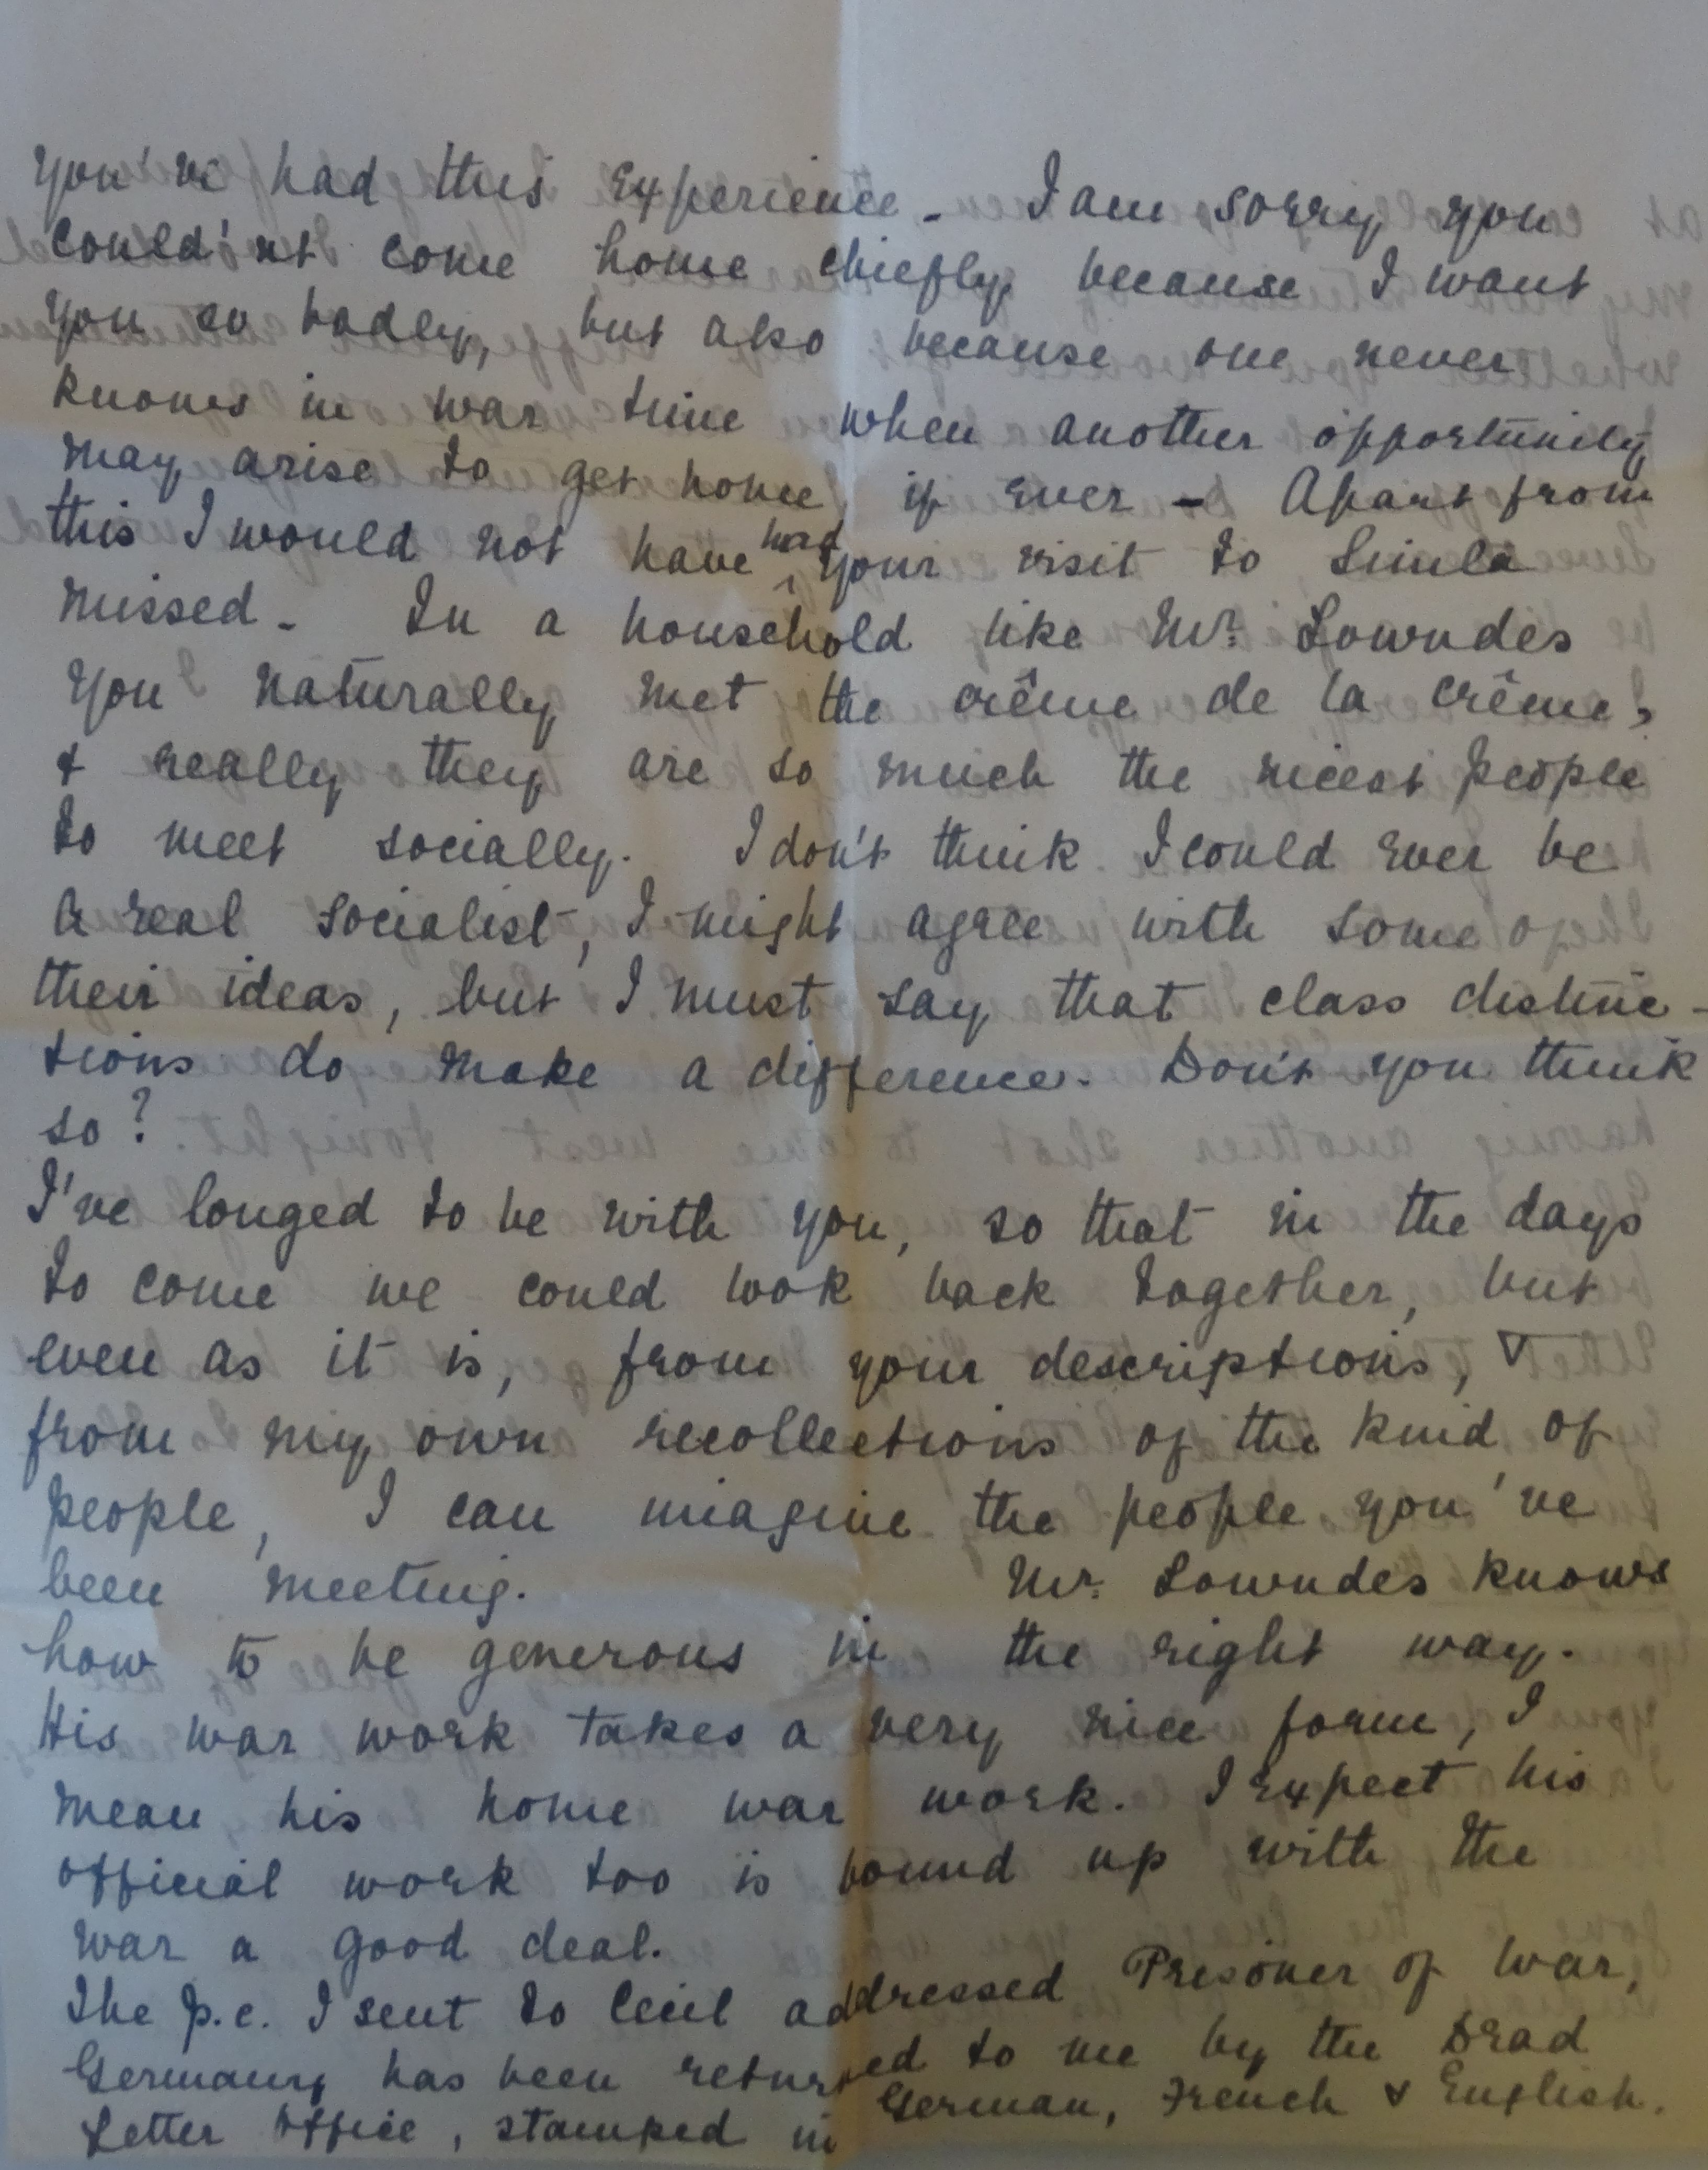 you've had this experience - I am sorry you
could'nt come home chiefly because I want
you so badly, but also because one never
knows in war time when another opportunity
may arise to get home, if ever - Apart from
this I would not have had your visit to Simla
missed - In a household like Mr. Lowndes
you naturally met the crême de la crême,
& really they are so much the nicest people
to meet socially. I don't think I could ever be
a real socialist, I might agree with some of
their ideas, but I must say that class distinc-
tions do make a difference. Don't you think
so?
I've longed to be with you, so that in the days
to come we could look back together, but
even as it is, from your descriptions, &
from my own recollections of the kind of
people, I can imagine the people you've
been meeting. Mr. Lowndes knows
how to be generous in the right way.
His war work takes a very nice form, I
mean his home war work. I expect his
official work too is bound up with the
war a good deal.
The p.c. I sent to Cecil addressed Prisoner of War,
Germany has been returned to me by the Dead
Letter Office, stamped in German, French & English.